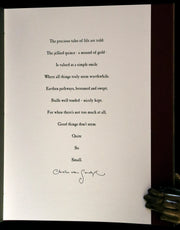 The precious tales of life are told:
The jellied quince - a mound of gold -
Is valued at a simple smile
Where all things truly seem worthwhile.
Earthen pathways, broomed and swept,
Stalls well tended - nicely kept.
For when there's not too much at all,
Good things don't seem
Quite
So
Small.